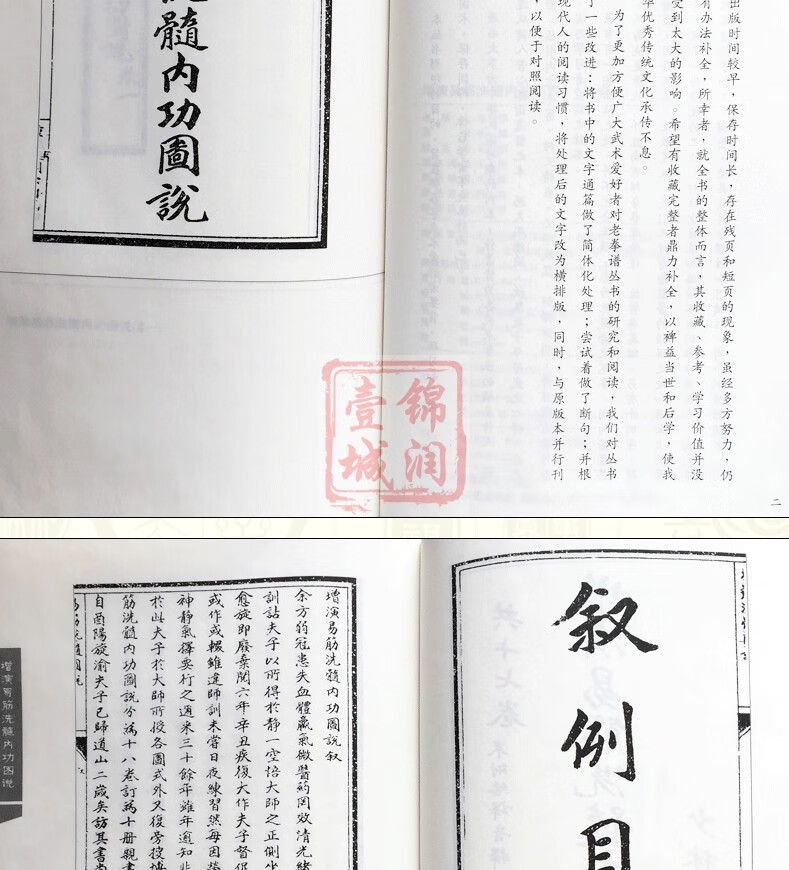 出版时间较早，保存时间长，存在残页和短页的现象，虽经多方努力，仍
有办法补全，所幸者，就全书的整体而言，其收藏、参考、学习价值并没
受到太大的影响。希望有收藏完整者鼎力补全，以裨益当世和后学，使我
华优秀传统文化承传不息。
为了更加方便广大武术爱好者对老拳谱丛书的研究和阅读，我们对丛书
了一些改进：将书中的文字通篇做了简体化处理；尝试着做了断句；并根
现代人的阅读习惯，将处理后的文字改为横排版，同时，与原版本并行刊
，以便于对照阅读。
二
洗髓内功圖説
锦润
壹城
叙例目
增演易筋洗髓内功圖説叙
余方弱冠患失血體羸氣微醫药罔效清光緒
訓詁夫子以所得於静一空悟大師之正側坐
愈旋即廢棄閲六年辛丑疾復大作夫子督促
或作或輟雖違師訓未嘗日夜練習然每因勞
神静氣擇要行之迺来三十餘年雖年逾知非
於此夫子於大師所授各圖式外又復旁授博
筋洗髓内功圖説分為十八卷訂為十册親書
自酉陽旋渝夫子已歸道山二歲矣訪其書尚
易筋洗髓圖説
增演易筋洗髓内功图说